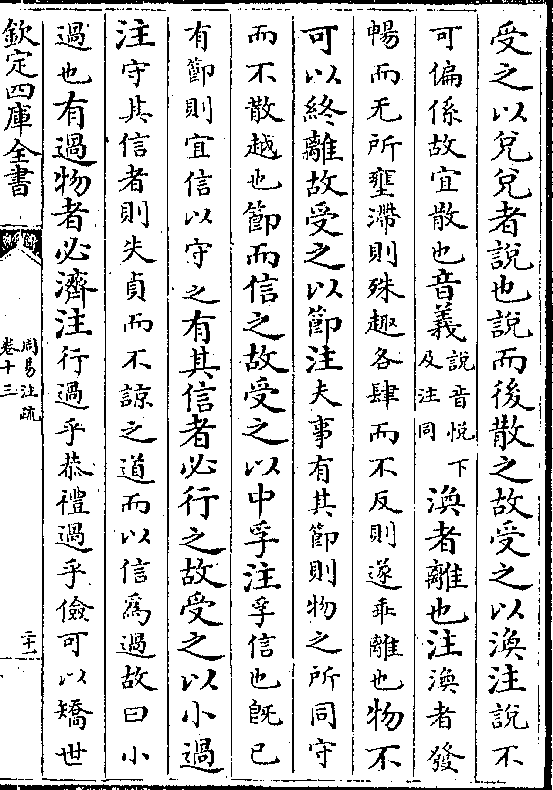 受之以兌兌者說也說而後散之故受之以渙注說不
可偏係故宜散也音義說音悅下及注同渙者離也注渙者發
暢而无所壅滯則殊趣各肆而不反則遂乖離也物不
可以終離故受之以節注夫事有其節則物之所同守
而不散越也節而信之故受之以中孚注孚信也既已
有節則宜信以守之有其信者必行之故受之以小過
注守其信者則失貞而不諒之道而以信爲過故曰小
過也有過物者必濟注行過乎恭禮過乎儉可以矯世
欽定四庫全書
周易注疏
卷十三
二十一